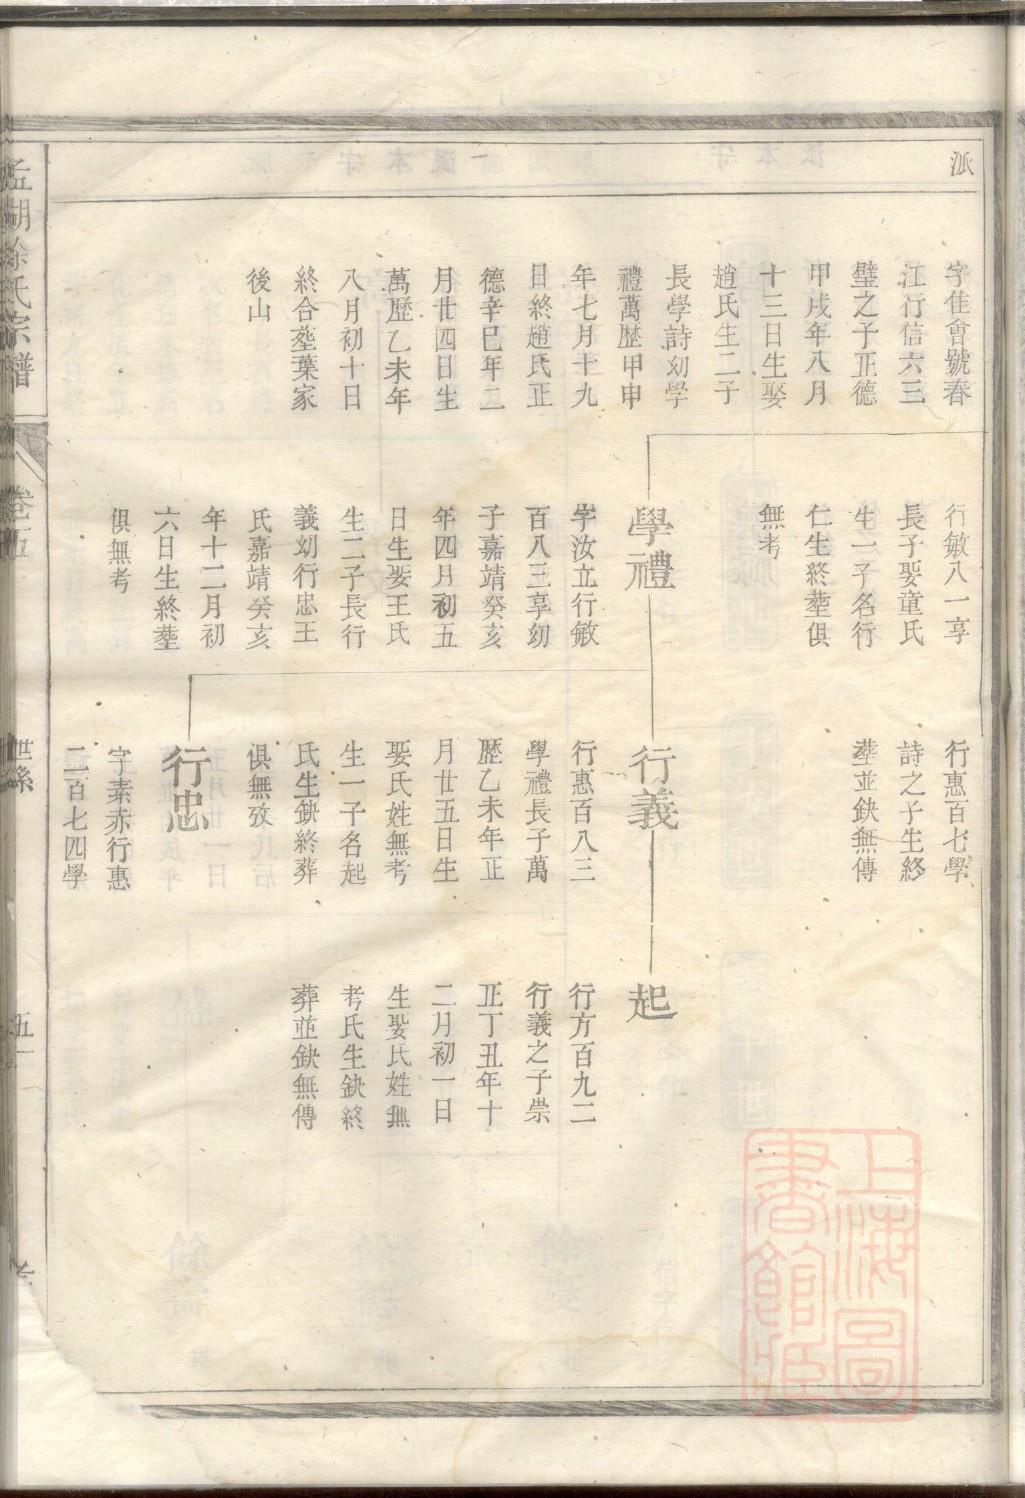 派
字隹會號春
江行信六三
璧之子正德
甲戌年八月
十三日生娶
趙氏生二子
長學詩幼學
禮萬歷甲申
年七月十九
日終趙氏正
德辛巳年二
月廿四日生
萬歷乙未年
八月初十日
終合塟葉家
後山
行敏八一享
長子娶童氏
生一子名行
仁生終塟俱
無考
學禮
字汝立行敏
百八三享幼
子嘉靖癸亥
年四月初五
日生娶王氏
生二子長行
義幼行忠王
氏嘉靖癸亥
年十二月初
六日生終塟
俱無考
行惠百七學
詩之子生終
塟並缺無傳
行義
行惠百八三
學禮長子萬
歷乙未年正
月廿五日生
娶氏姓無考
生一子名起
氏生缺終葬
俱無攷
行忠
字素赤行惠
二百七四學
起
行方百九二
行義之子崇
正丁丑年十
二月初一日
生娶氏姓無
考氏生缺終
葬並缺無傳
孟湖徐氏宗譜
卷五
世系
五一
上海圖
書館藏